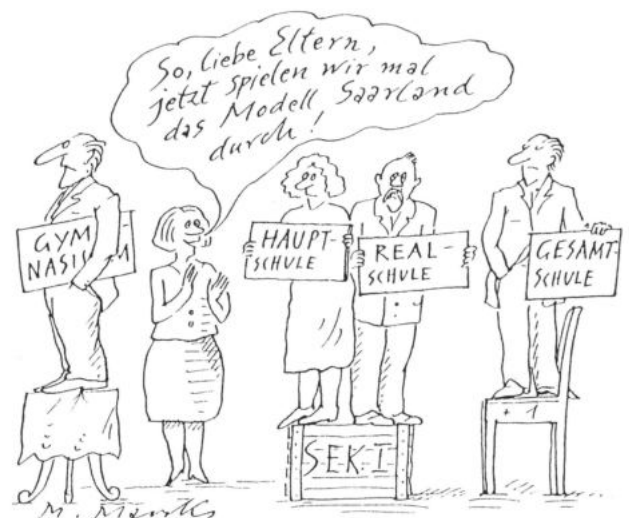 So, liebe Eltern,
jetzt spielen wir mal
das Modell Saarland
durch!
GYM
NASIUM
HAUPT-
SCHULE
REAL-
SCHULE
GESAMT-
SCHULE
SEK I
+1